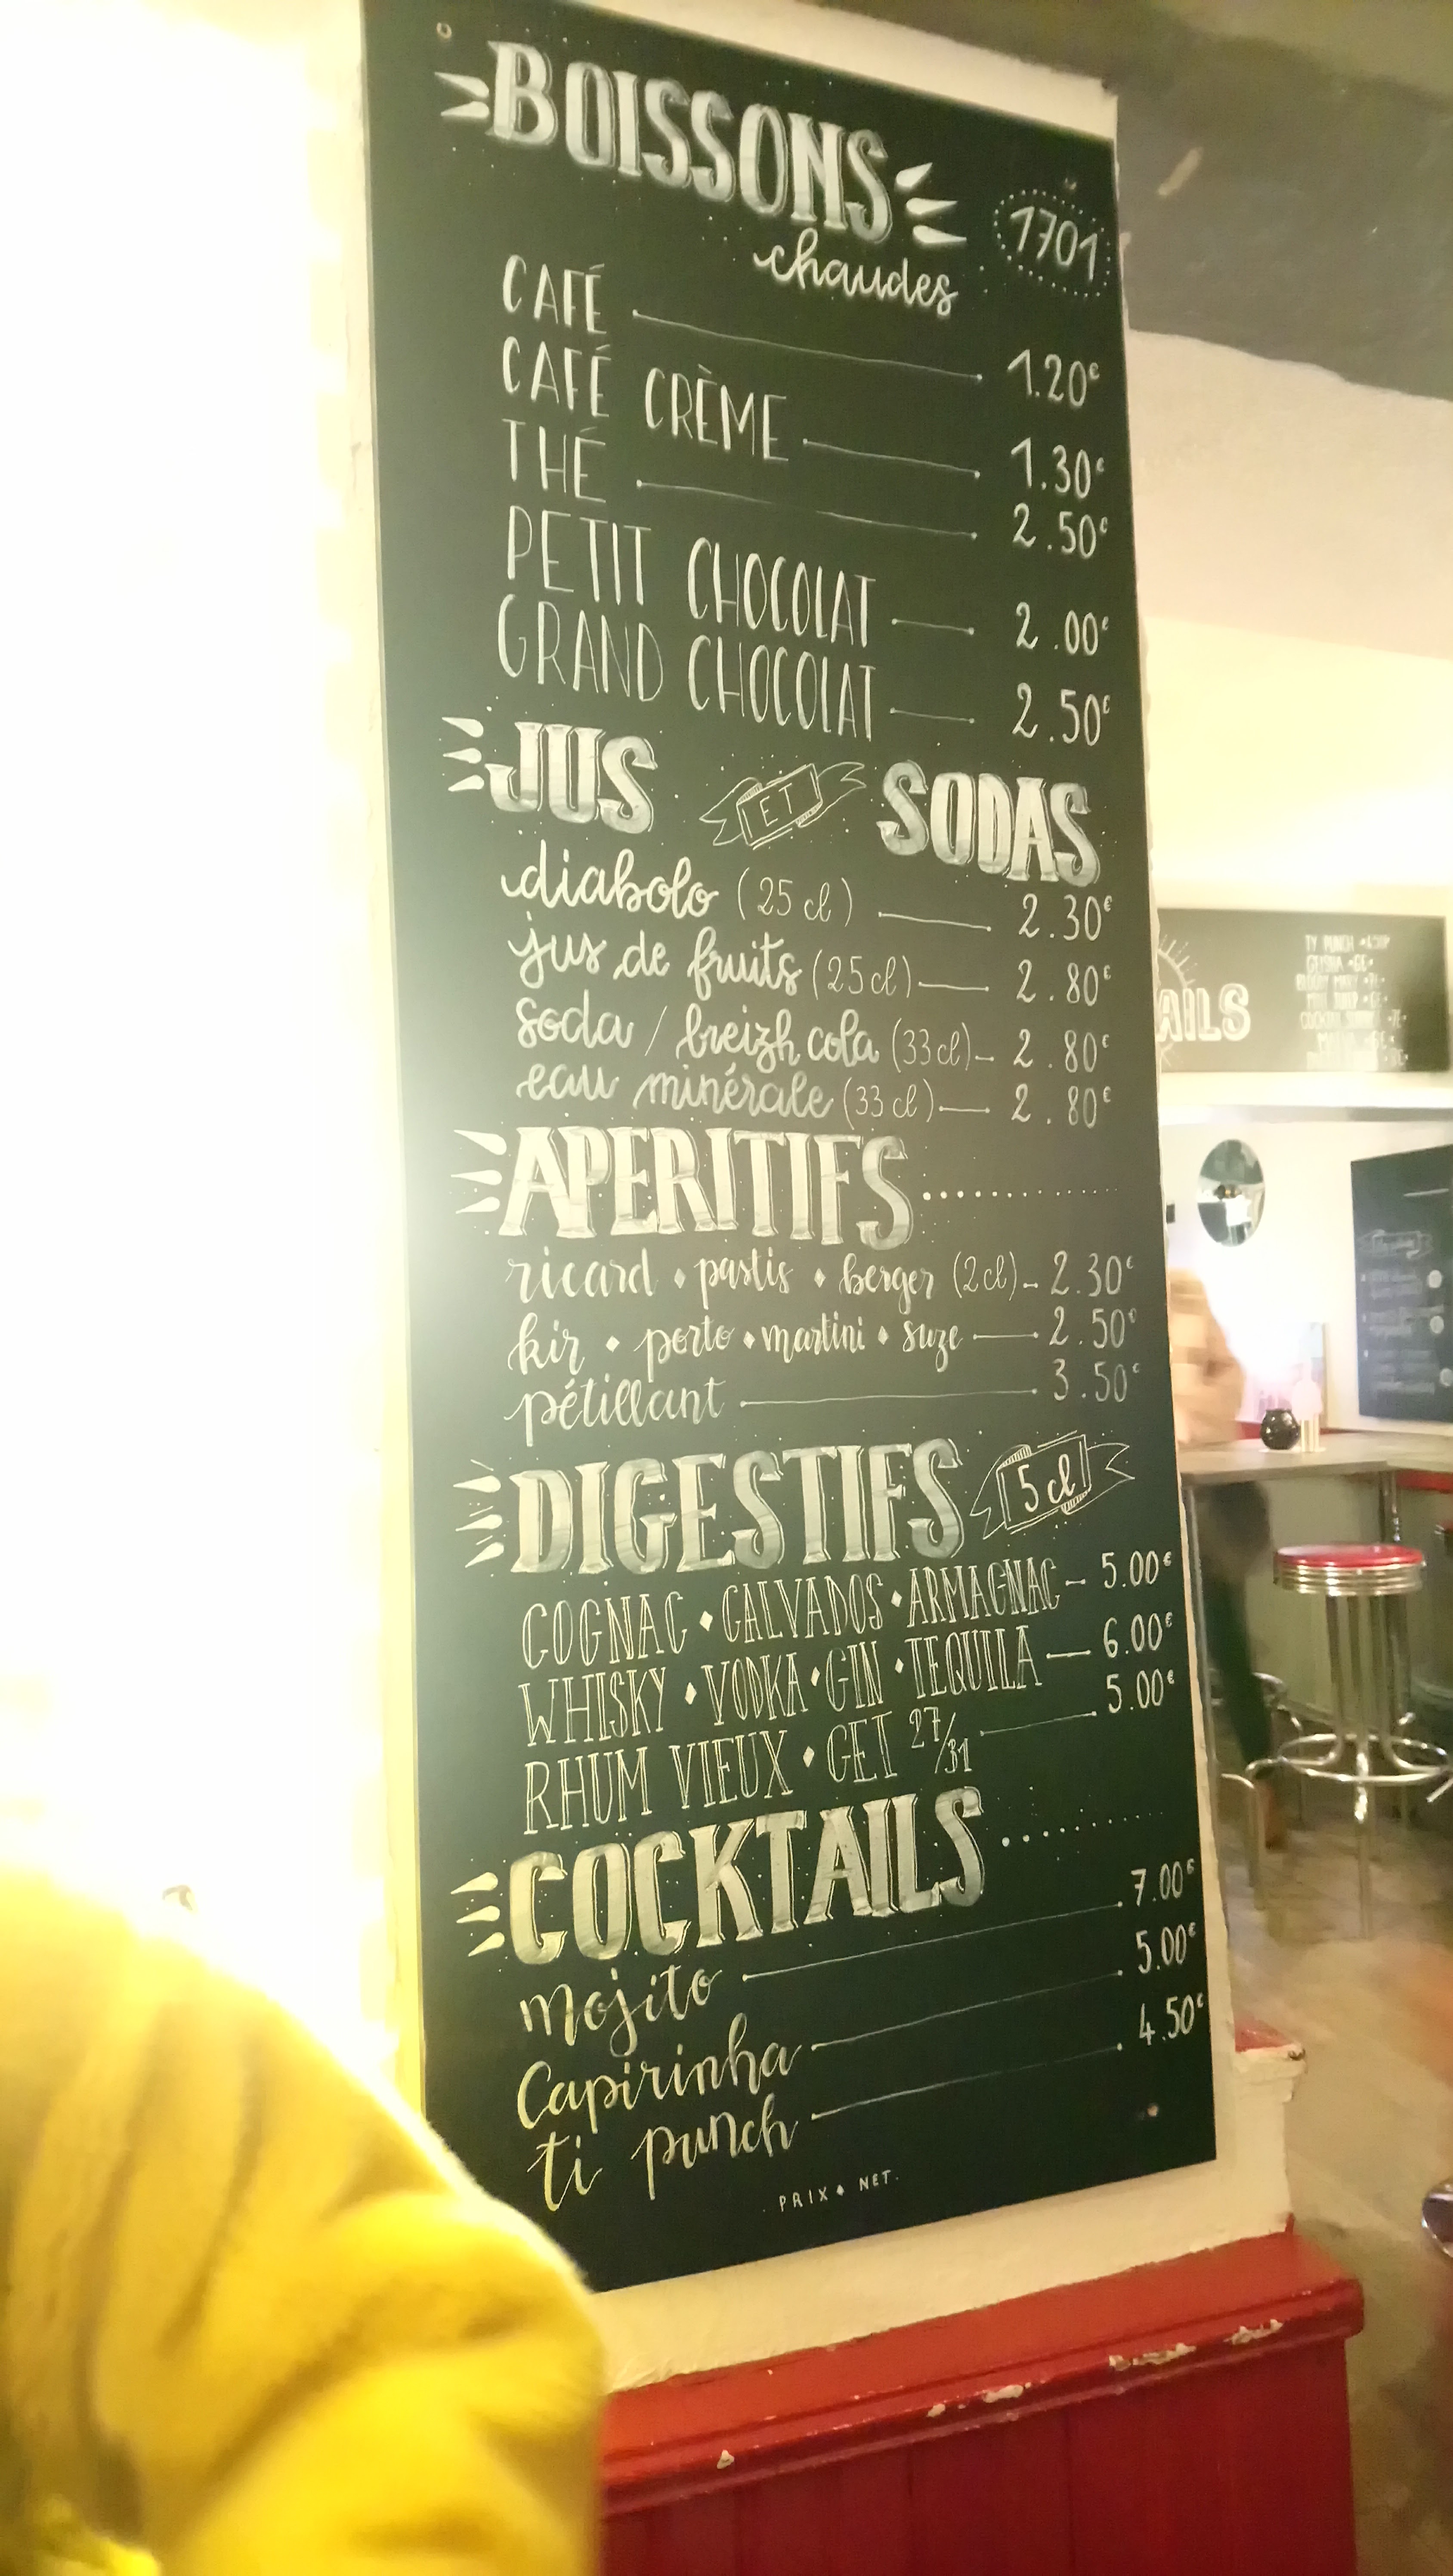 BOISSONS
chaudes
1701
CAFÉ 1.20€
CAFÉ CRÈME 1.30€
THÉ 2.50€
PETIT CHOCOLAT 2.00€
GRAND CHOCOLAT 2.50€
JUS ET SODAS
diabolo (25 cl) 2.30€
jus de fruits (25 cl) 2.80€
soda / breizh cola (33 cl) 2.80€
eau minérale (33 cl) 2.80€
APERITIFS
ricard • pastis • berger (2 cl) 2.30€
kir • porto • martini • suze 2.50€
pétillant 3.50€
DIGESTIFS 5 cl
COGNAC • CALVADOS • ARMAGNAC 5.00€
WHISKY • VODKA • GIN • TEQUILA 6.00€
RHUM VIEUX • GET 27/31 5.00€
COCKTAILS
mojito 7.00€
Capirinha 5.00€
ti punch 4.50€
PRIX • NET.
AILS
TY PUNCH
GEISHA
BLOODY MARY